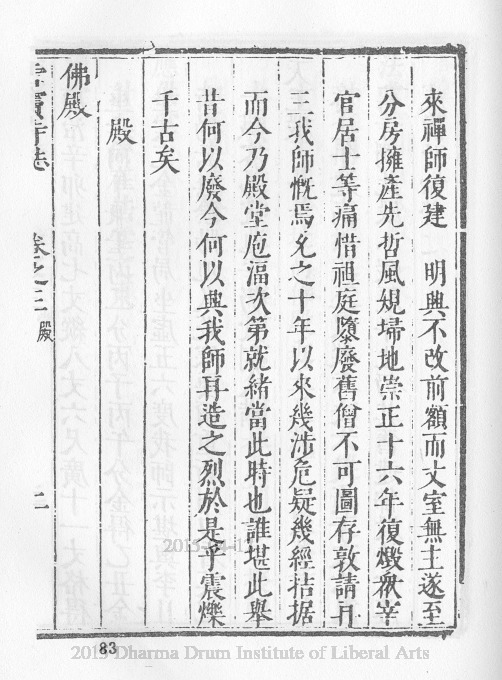 來禪師復建　明興不改前額而丈室無主遂至
分房擁產先哲風規埽地崇正十六年復燬衆宰
官居士等痛惜祖庭隳廢舊僧不可圖存敦請再
三我師慨焉允之十年以來幾涉危疑幾經拮据
而今乃殿堂庖湢次第就緒當此時也誰堪此舉
昔何以廢今何以興我師再造之烈於是乎震爍
千古矣
殿
佛殿
寺志　卷之三　殿　二
83
2015 Dharma Drum Institute of Liberal Arts